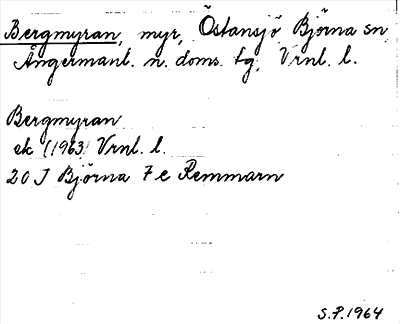 Bergmyran, myr, Östansjö Björna sn,
Ångermanl. n. doms. tg, Vrnl. l.
Bergmyran
ek (1963) Vrnl. l.
20 J Björna 7 e Remmarn
S.P. 1964